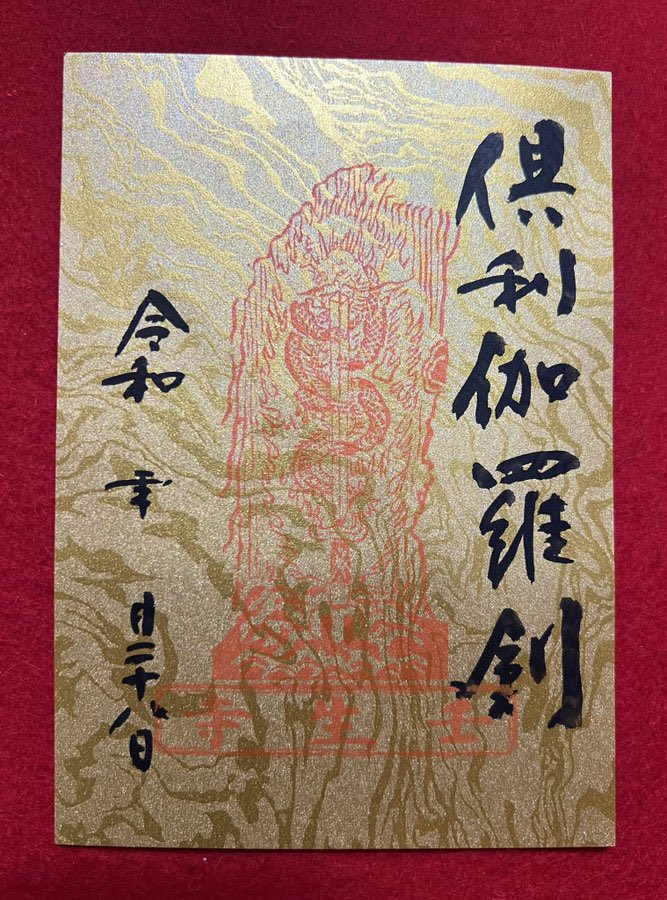 倶利伽羅剣
令和 年 月二十八日
壬生寺